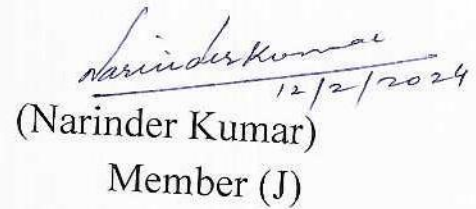 Narinder Kumar
12/2/2024
(Narinder Kumar)
Member (J)